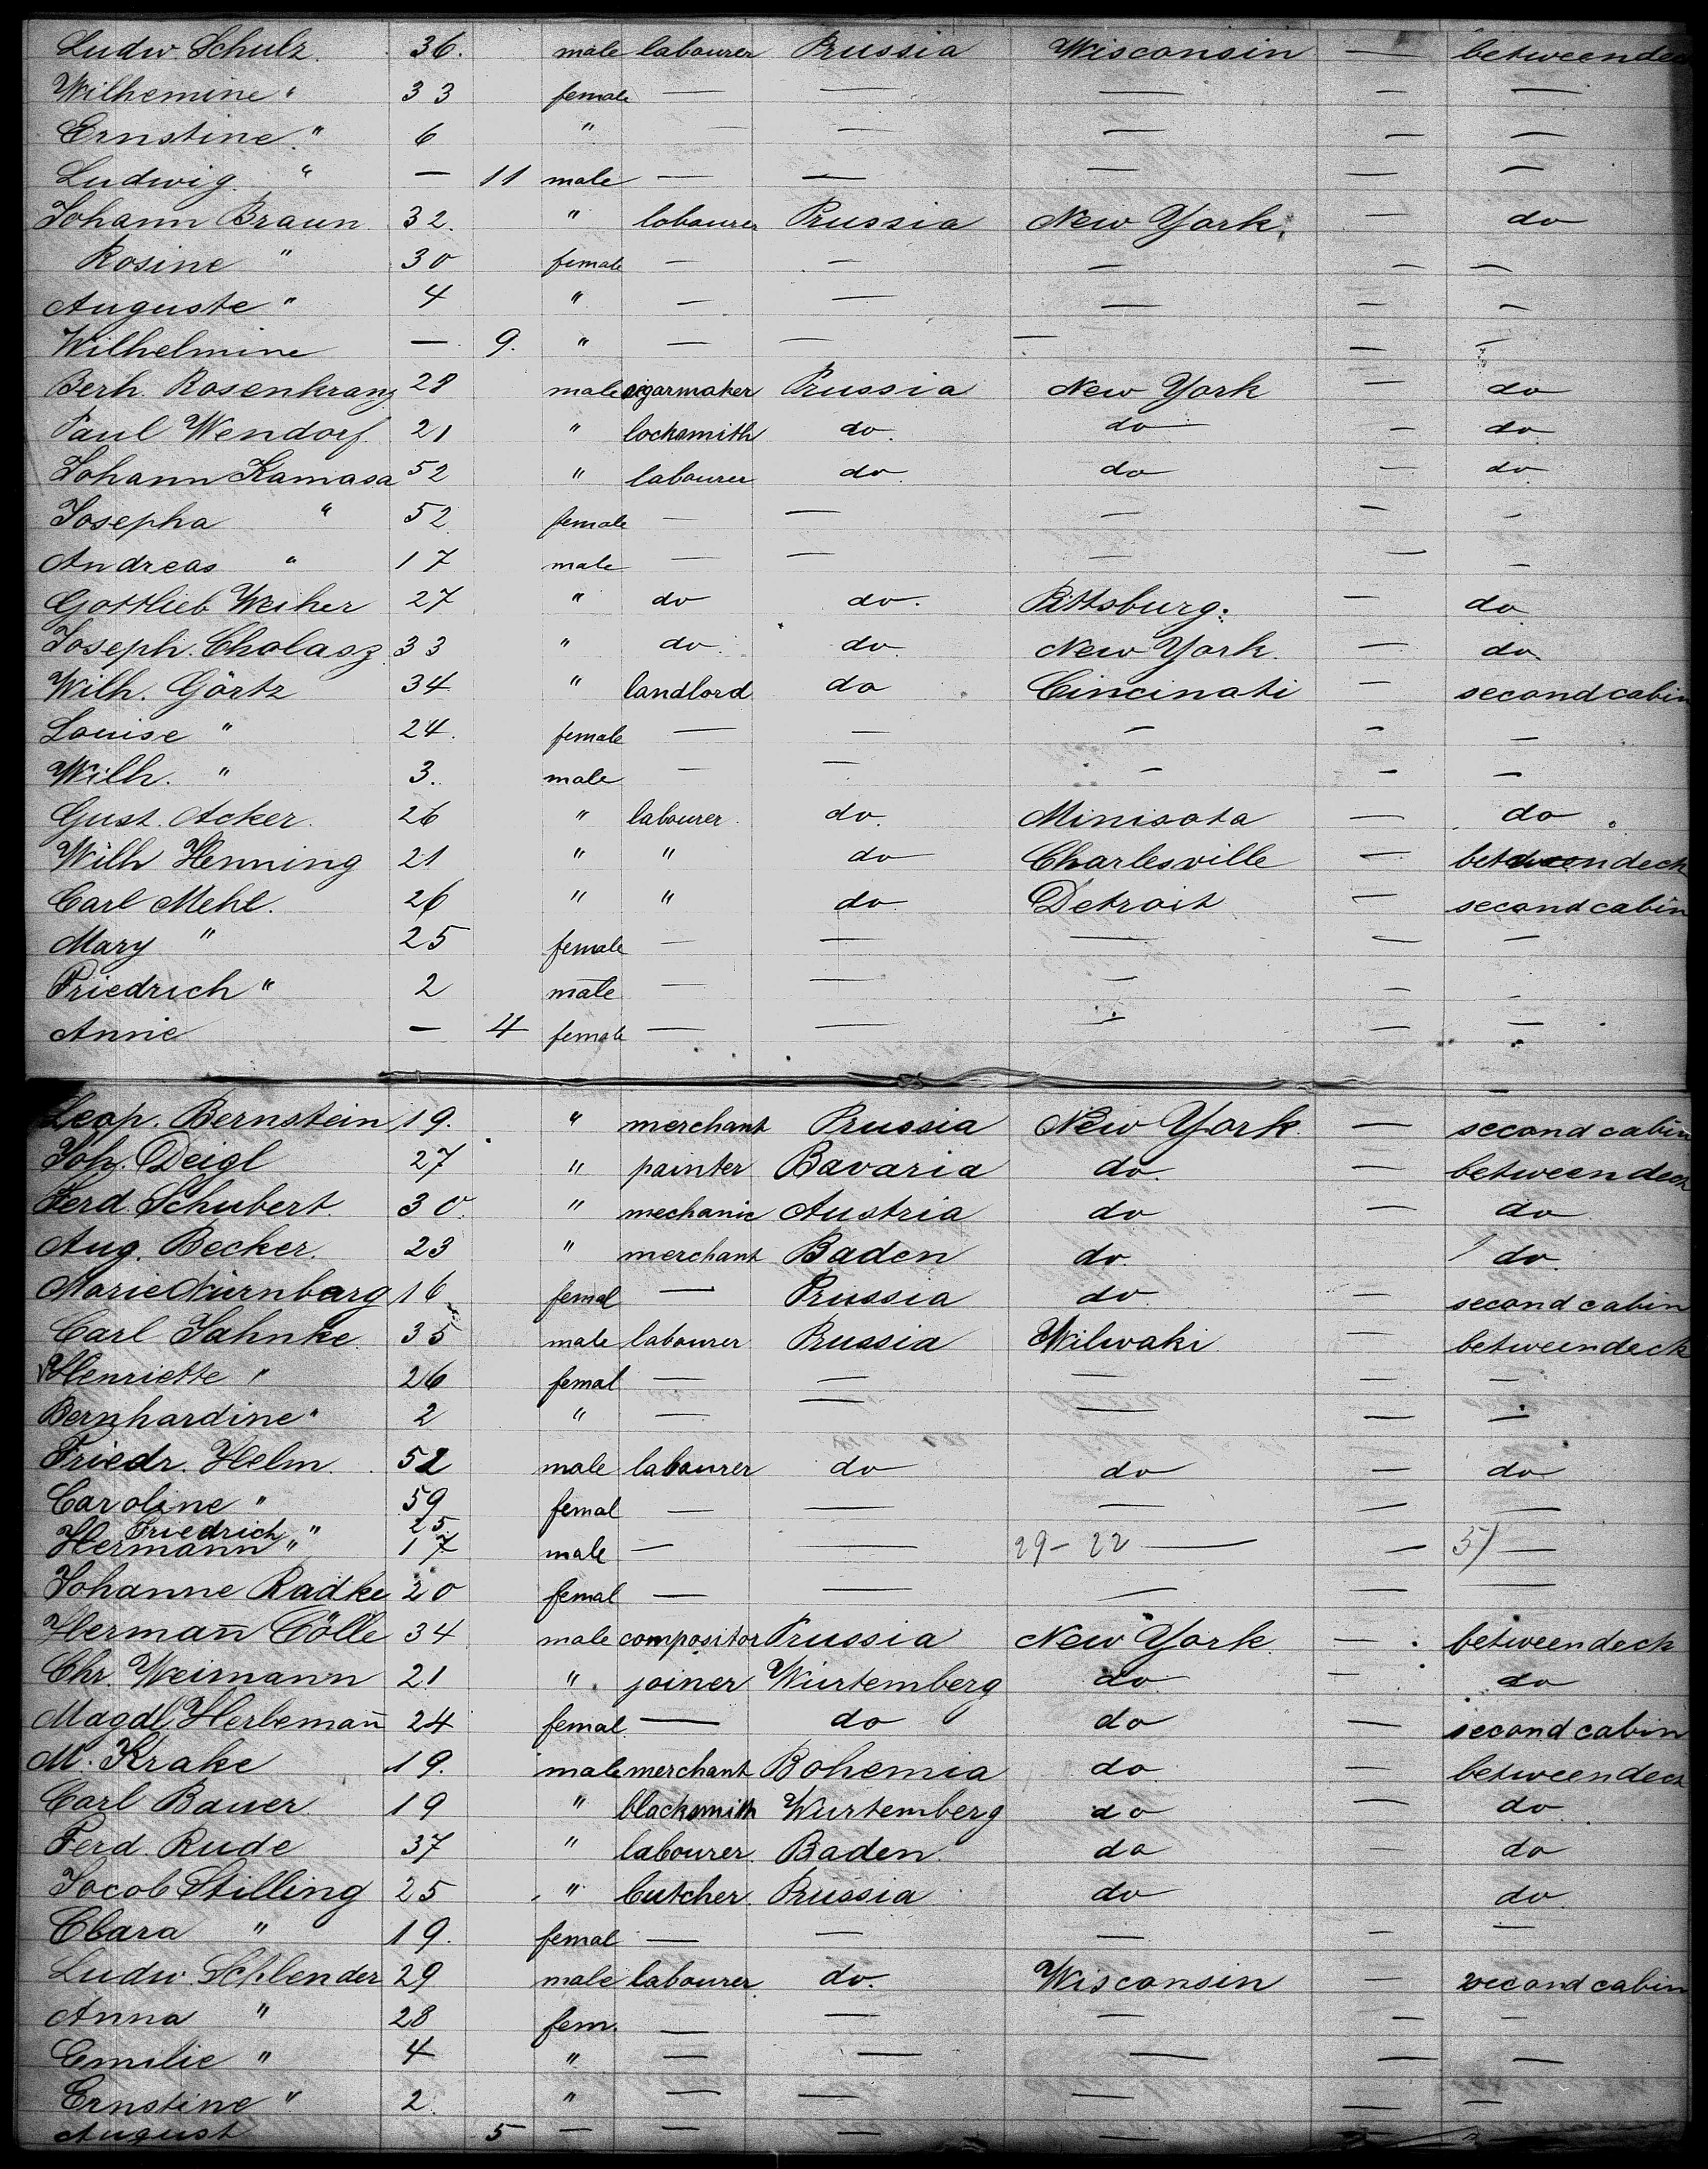 Ludw. Schulz. 36. male labourer Prussia Wisconsin — betweendec
Wilhemine " 33 female — — — — —
Ernstine " 6 " — — — — —
Ludwig " — 11 male — — — — —
Johann Braun 32. " labourer Prussia New York. — do
Rosine " 30 female — — — — —
Auguste " 4 " — — — — —
Wilhelmine — 9. " — — — — —
Berh. Rosenkranz 28 male cigarmaker Prussia New York — do
Paul Wendorf 21 " locksmith do. do — do
Johann Kamasa 52 " labourer do. do — do.
Josepha " 52 female — — — — —
Andreas " 17 male — — — — —
Gottlieb Weiher 27 " do do. Pittsburg. — do
Joseph. Cholasz 33 " do. do. New York. — do.
Wilh. Görtz 34 " landlord do Cincinati — second cabin
Louise " 24. female — — — — —
Wilh. " 3. male — — — — —
Gust. Acker. 26 " labourer. do. Minisota — do
Wilh Henning 21 " " do Charlesville — betweendeck
Carl Mehl. 26 " " do Detroit — second cabin
Mary " 25 female — — — — —
Friedrich " 2 male — — — — —
Annie — 4 female — — — — —
Leop. Bernstein 19. " merchant Prussia New York. — second cabin
Joh. Deigl 27 " painter Bavaria do. — betweendeck
Ferd. Schubert. 30. " mechanic Austria do — do
Aug. Becker. 23 " merchant Baden do. do.
Marie Nürnbarg 16 femal — Prussia do — second cabin
Carl Jahnke 35 male labourer Prussia Wilwaki — betweendeck
Henriette " 26 femal — — — — —
Bernhardine " 2 " — — — — —
Friedr. Helm. 52 male labourer do do — do
Caroline " 59 femal — — — — —
Friedrich " 25.
Hermann " 17 male — — 29-22 — — 5/ —
Johanne Radke 20 femal — — — — —
Hermañ Cölle 34 male compositor Prussia New York. — betweendeck
Chr. Weimann 21 " joiner Würtemberg do — do
Magdl. Herbemañ 24 femal — do do — second cabin
M. Krake 19. male merchant Bohemia do — betweendeck
Carl Bauer 19 " blacksmith Wurtemberg do — do
Ferd. Rude 37 " labourer. Baden. do — do
Jacob Stilling 25 " butcher. Prussia do — do
Clara " 19. femal — — — — —
Ludw. Schlender 29 male labourer. do. Wisconsin — second cabin
Anna " 28 fem. — — — — —
Emilie " 4 " — — — — —
Ernstine " 2. " — — — — —
August 5 — — — — — "